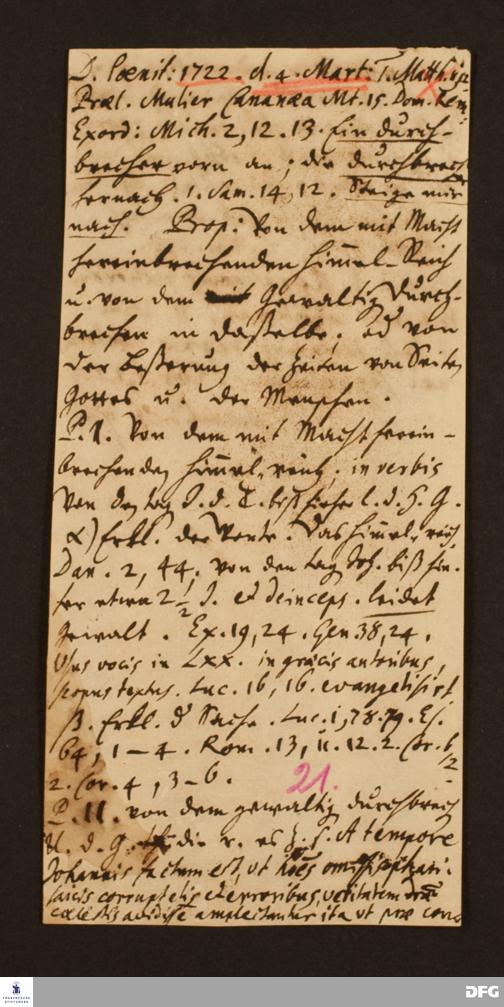 D. Poenit: 1722. d. 4. Mart: T. Matth. 11,12
Praet. Mulier Cananaea Mt. 15. Dom. Rem.
Exord: Mich. 2, 12. 13. Ein durch-
brecher vorn an; die durchbrech
hernach. 1. Sam. 14, 12. Steige mir
nach. Prop: Von dem mit Macht
hereinbrechenden Himmel-Reich
u. von dem Gewaltig Durch-
brechen in dasselbe, od von
der Besserung der Zeiten von Seiten
Gottes u. der Menschen.
P. I. Von dem mit Macht herein-
brechenden Himmel-reich. in verbis
Von den tag J. d. T. biß hieher l. d. H. G.
α) Erkl. der Worte. Das Himmelreich
Dan. 2, 44, von den tag Joh. biß hie-
her etwa 2 1/2 J. et deinceps. leidet
Gewalt. Ex. 19, 24. Gen 38, 24.
Usus vocis in LXX. in graecis autoribus,
scopus textus. Luc. 16, 16. evangelisirt
β. Erkl. d Sache. Luc. 1, 78. 79. Es.
64, 1-4. Rom. 13, 11. 12. 2. Cor. 6/2
2. Cor. 4, 3-6.
21.
P. II. von dem gewaltig durchbrech
U. d. G. die r. es z. s. A tempore
Johannis factum est, ut
corruptelis et erroribus, veritatem
amplectantur ita ut prae
FRANCKESCHE STIFTUNGEN
DFG